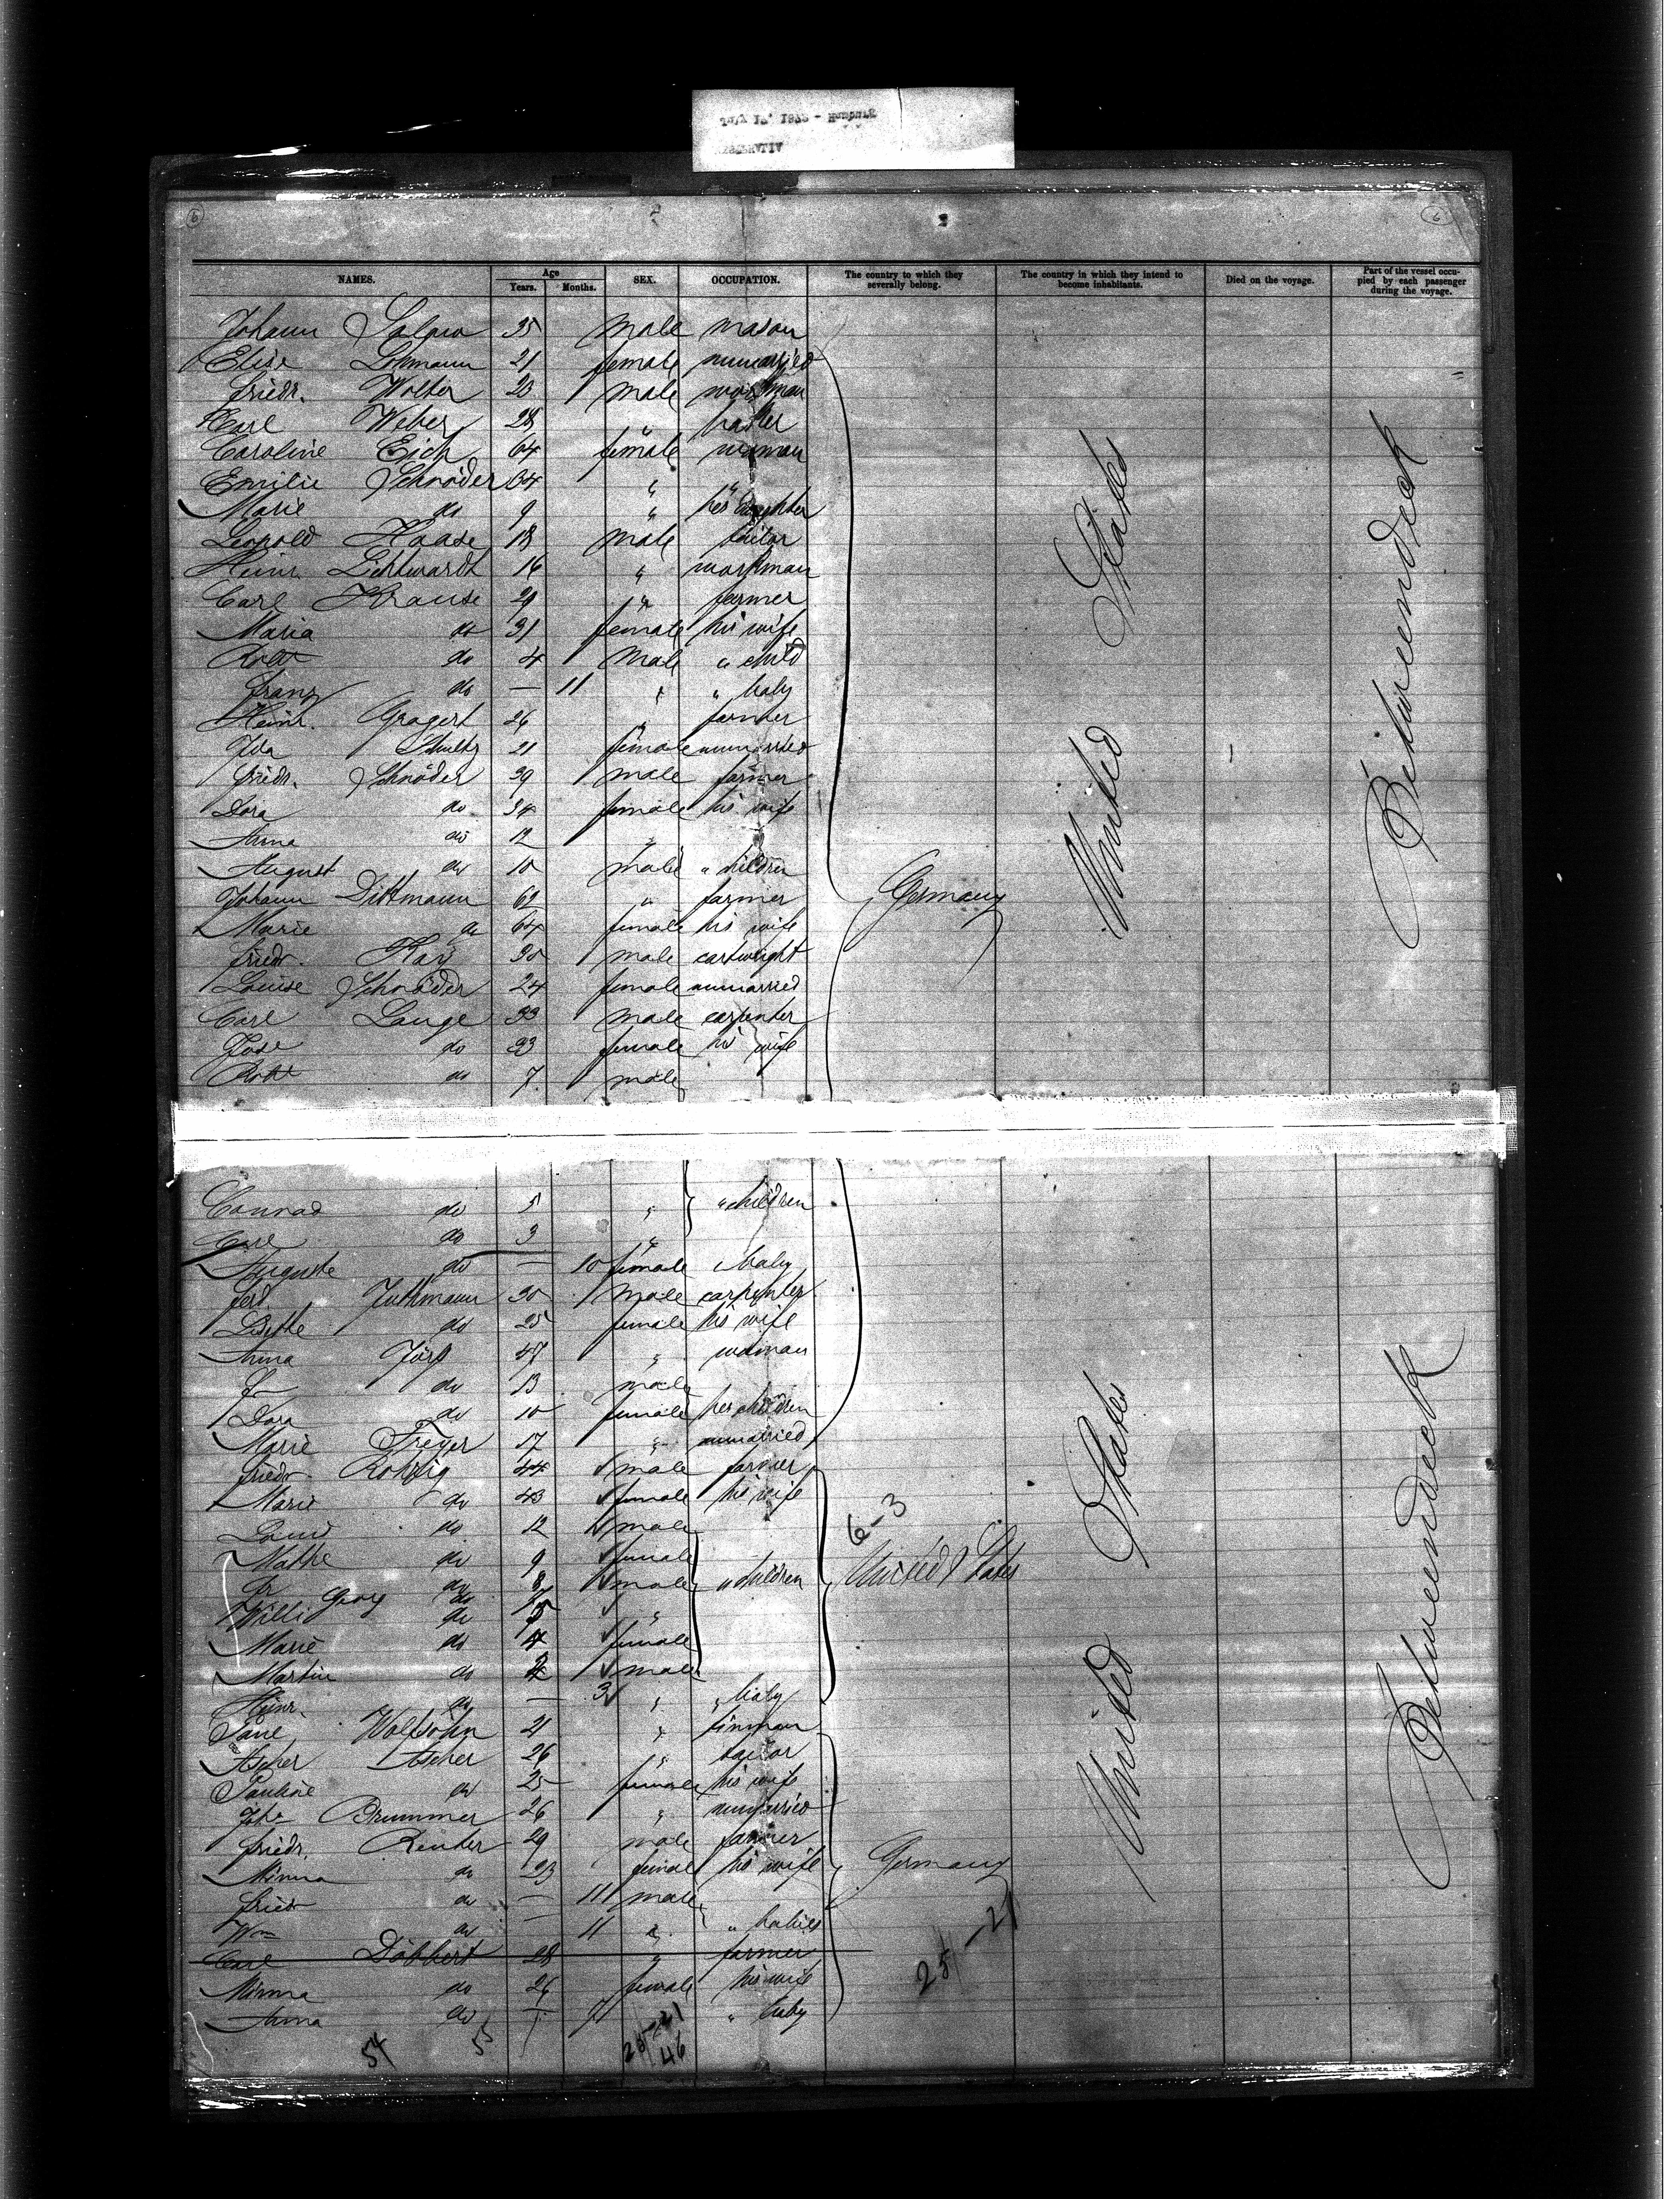 NAMES. Age Years. Months. SEX. OCCUPATION. The country to which they severally belong. The country in which they intend to become inhabitants. Died on the voyage. Part of the vessel occupied by each passenger during the voyage.
Johann 35 male mason
Elise Lohmann 21 female unmarried
Friedr. Wolter 23 male workman
Carl Weber 28 "
Caroline Eich 64 female woman
Emilie Schröder 64 " "
Marie do 9 " her daughter
Leopold Haase 18 male tailor
Heinr. Lichtwardt 16 " workman
Carl Krause 29 " farmer
Maria do 31 female his wife
Robt do 4 male " child
Franz do — 11 " " baby
Heinr. Gragert 26 " farmer
Ida Schultz 21 female unmarried
Friedr. Schröder 39 male farmer
Dora do 34 female his wife
Anna do 12 "
August do 10 male " children
Johann Dittmann 62 " farmer
Germany
Marie do 64 female his wife
Friedr. 30 male cartwright
Louise Schröder 24 female unmarried
Carl Lange 33 male carpenter
do 33 female his wife
Robt do 7 male
United States
Betweendeck
Conrad do 5 " " children
Carl do 3 "
Auguste do — 10 female " baby
Ferd. Juthmann 30 male carpenter
Lisette do 25 female his wife
Anna 47 " woman
do 13 male
Dora do 10 female her children
Marie Freyer 17 " unmarried
Friedr. 44 male farmer
Marie do 43 female his wife
Louis do 12 male
6-3
do 9 female
do 8 male " children
United States
Georg do
Willi do 5 "
Marie do 4 female
Martin do 2 male
Heinr. do — 3 " " baby
Wolfsohn 21 " tinman
Ascher Ascher 26 " tailor
Pauline do 25 female his wife
Brummer 26 " unmarried
Friedr. Reuter 29 male farmer
Minna do 23 female his wife
Germany
Friedr do — 11 male
Wm do — 11 " " babies
Carl Döbbert 28 " farmer
Minna do 26 female his wife
Anna do — 7 " baby
25-21
54 55 25-21
46
United States
Betweendeck